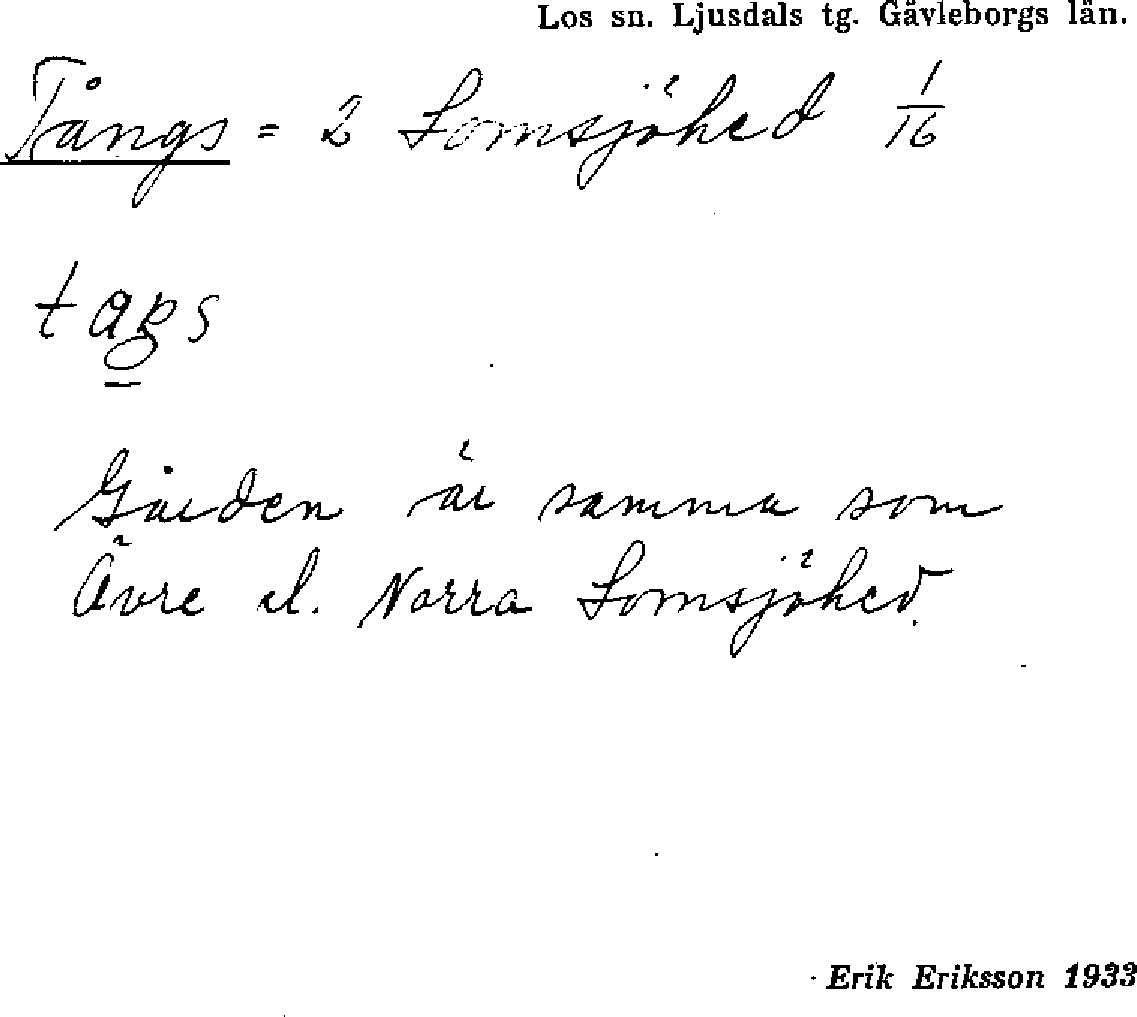 Los sn. Ljusdals tg. Gävleborgs län.
Tångs = 2 Lomsjöhed 1/16
Gården är samma som
Övre el. Norra Lomsjöhed.
Erik Eriksson 1933